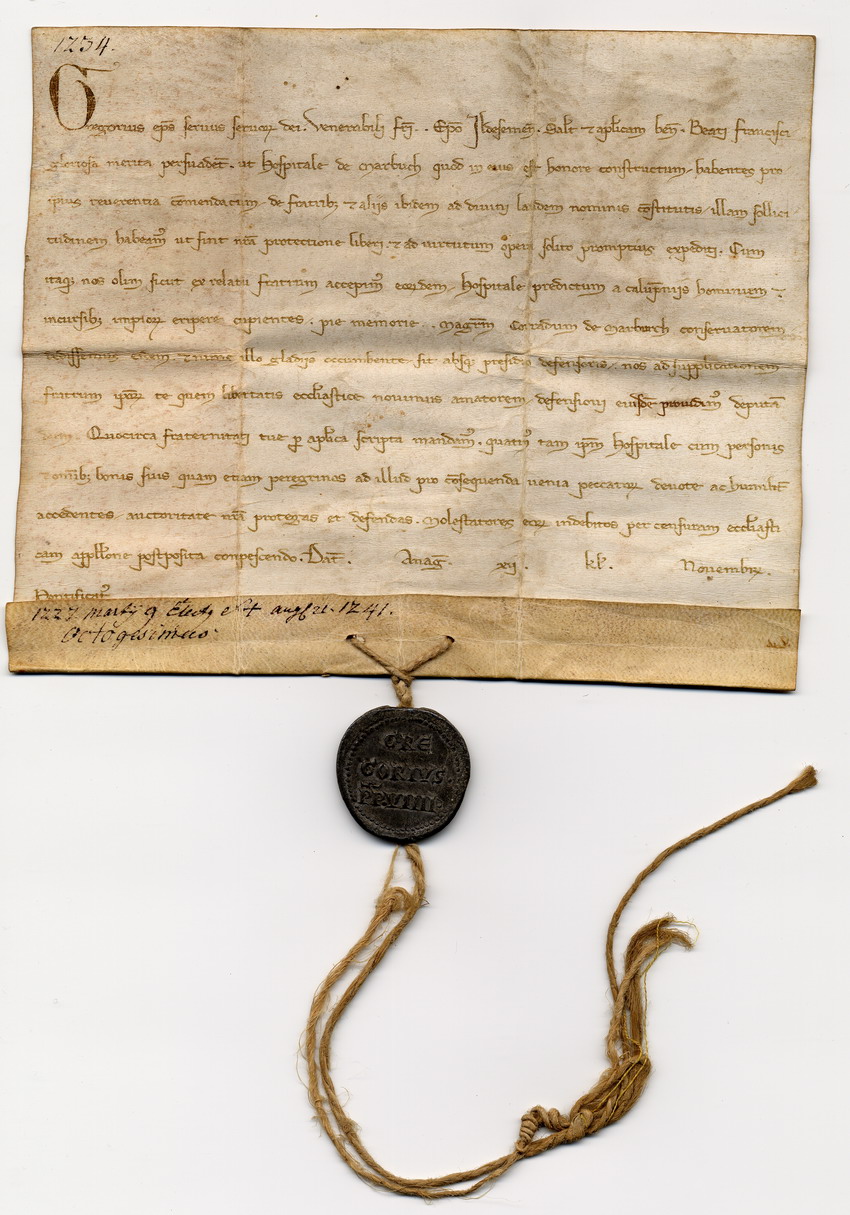 1234.
Gregorius eps servus servoꝝ dei. Venerabili fri . . Epo Ildesemen. Salt ⁊ aplicam ben. Beati Francisci
gloriosa merita persuadet. ut Hospitale de Marburch quod in eius est honore constructum habentes pro
ipius reverentia comendatum de fratribꝫ ⁊ aliis ibidem ad divini laudem nominis constitutis illam sollici
tudinem habeam ut sint nra protectione liberi. ⁊ ad virtutum opera solito promptius expediti. Cum
itaqꝫ nos olim sicut ex relatu fratrum accepim eorumdem Hospitale predictum a calupniis hominum ⁊
incursibꝫ impioꝝ eripere cupientes. pie memorie . . Magrm Corradum de Marburch conservatorem
dedissemus eidem. ⁊ nunc illo gladiis occumbente sit absqꝫ presidio defensoris. nos ad supplicationem
fratrum ipoꝝ te quem libertatis eccliastice novimus amatorem defensioni eiusde providim deputa
dum. Quocirca fraternitati tue ꝑ aplica scripta mandam. quatin tam ipm Hospitale cum personis
⁊ omibꝫ bonis suis quam etiam peregrinos ad illud pro consequenda venia peccatoꝝ devote ac humilit
accedentes auctoritate nra protegas et defendas. Molestatores eoꝝ indebitos per censuram eccliasti
cam appllone postposita conpescendo. Dat. Anag. xii. kl. Novembꝝ.
Pontificat
1227 martij 9 Elect et + aug 21. 1241.
Octogesimus
GRE
GORIVS
PP VIIII